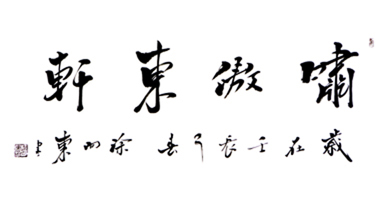 嘯傲東軒
歲在壬辰之春 徐明東書